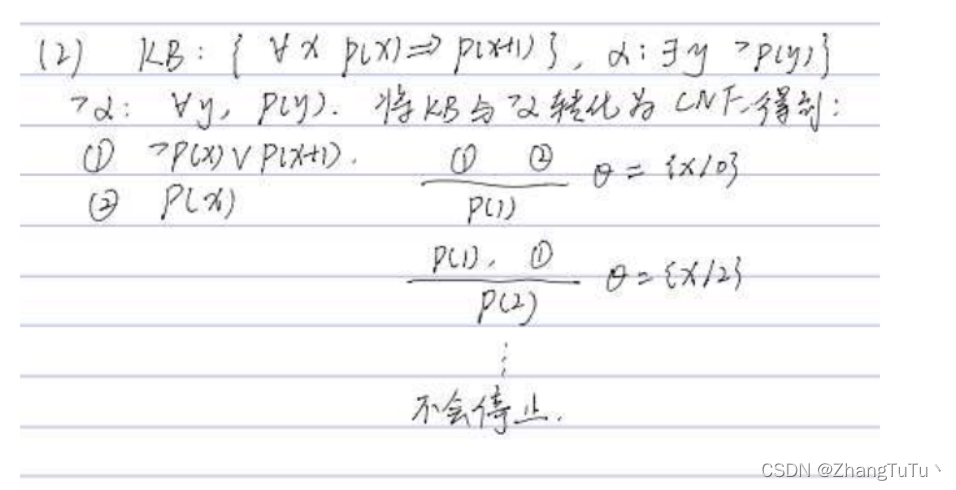 (2) KB: { ∀x p(x) ⇒ p(x+1) }, α: ∃y ¬p(y) }
¬α: ∀y, p(y). 将KB与¬α转化为CNF得到:
① ¬P(x) ∨ P(x+1).
② P(x)
① ② θ = {x/0}
P(1)
P(1), ① θ = {x/2}
P(2)
⋮
不会停止.
CSDN @ZhangTuTu丶